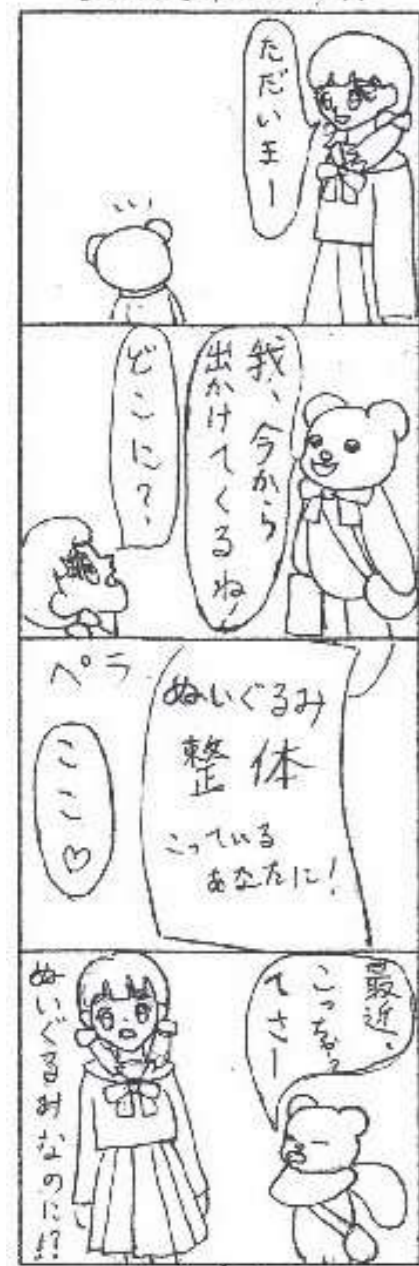 ただいまー
我、今から
出かけてくるね!
どこに?
ぬいぐるみ
整体
こっている
あなたに!
ペラ
ここ♡
最近、
こっちゃって
さー
ぬいぐるみなのに!?